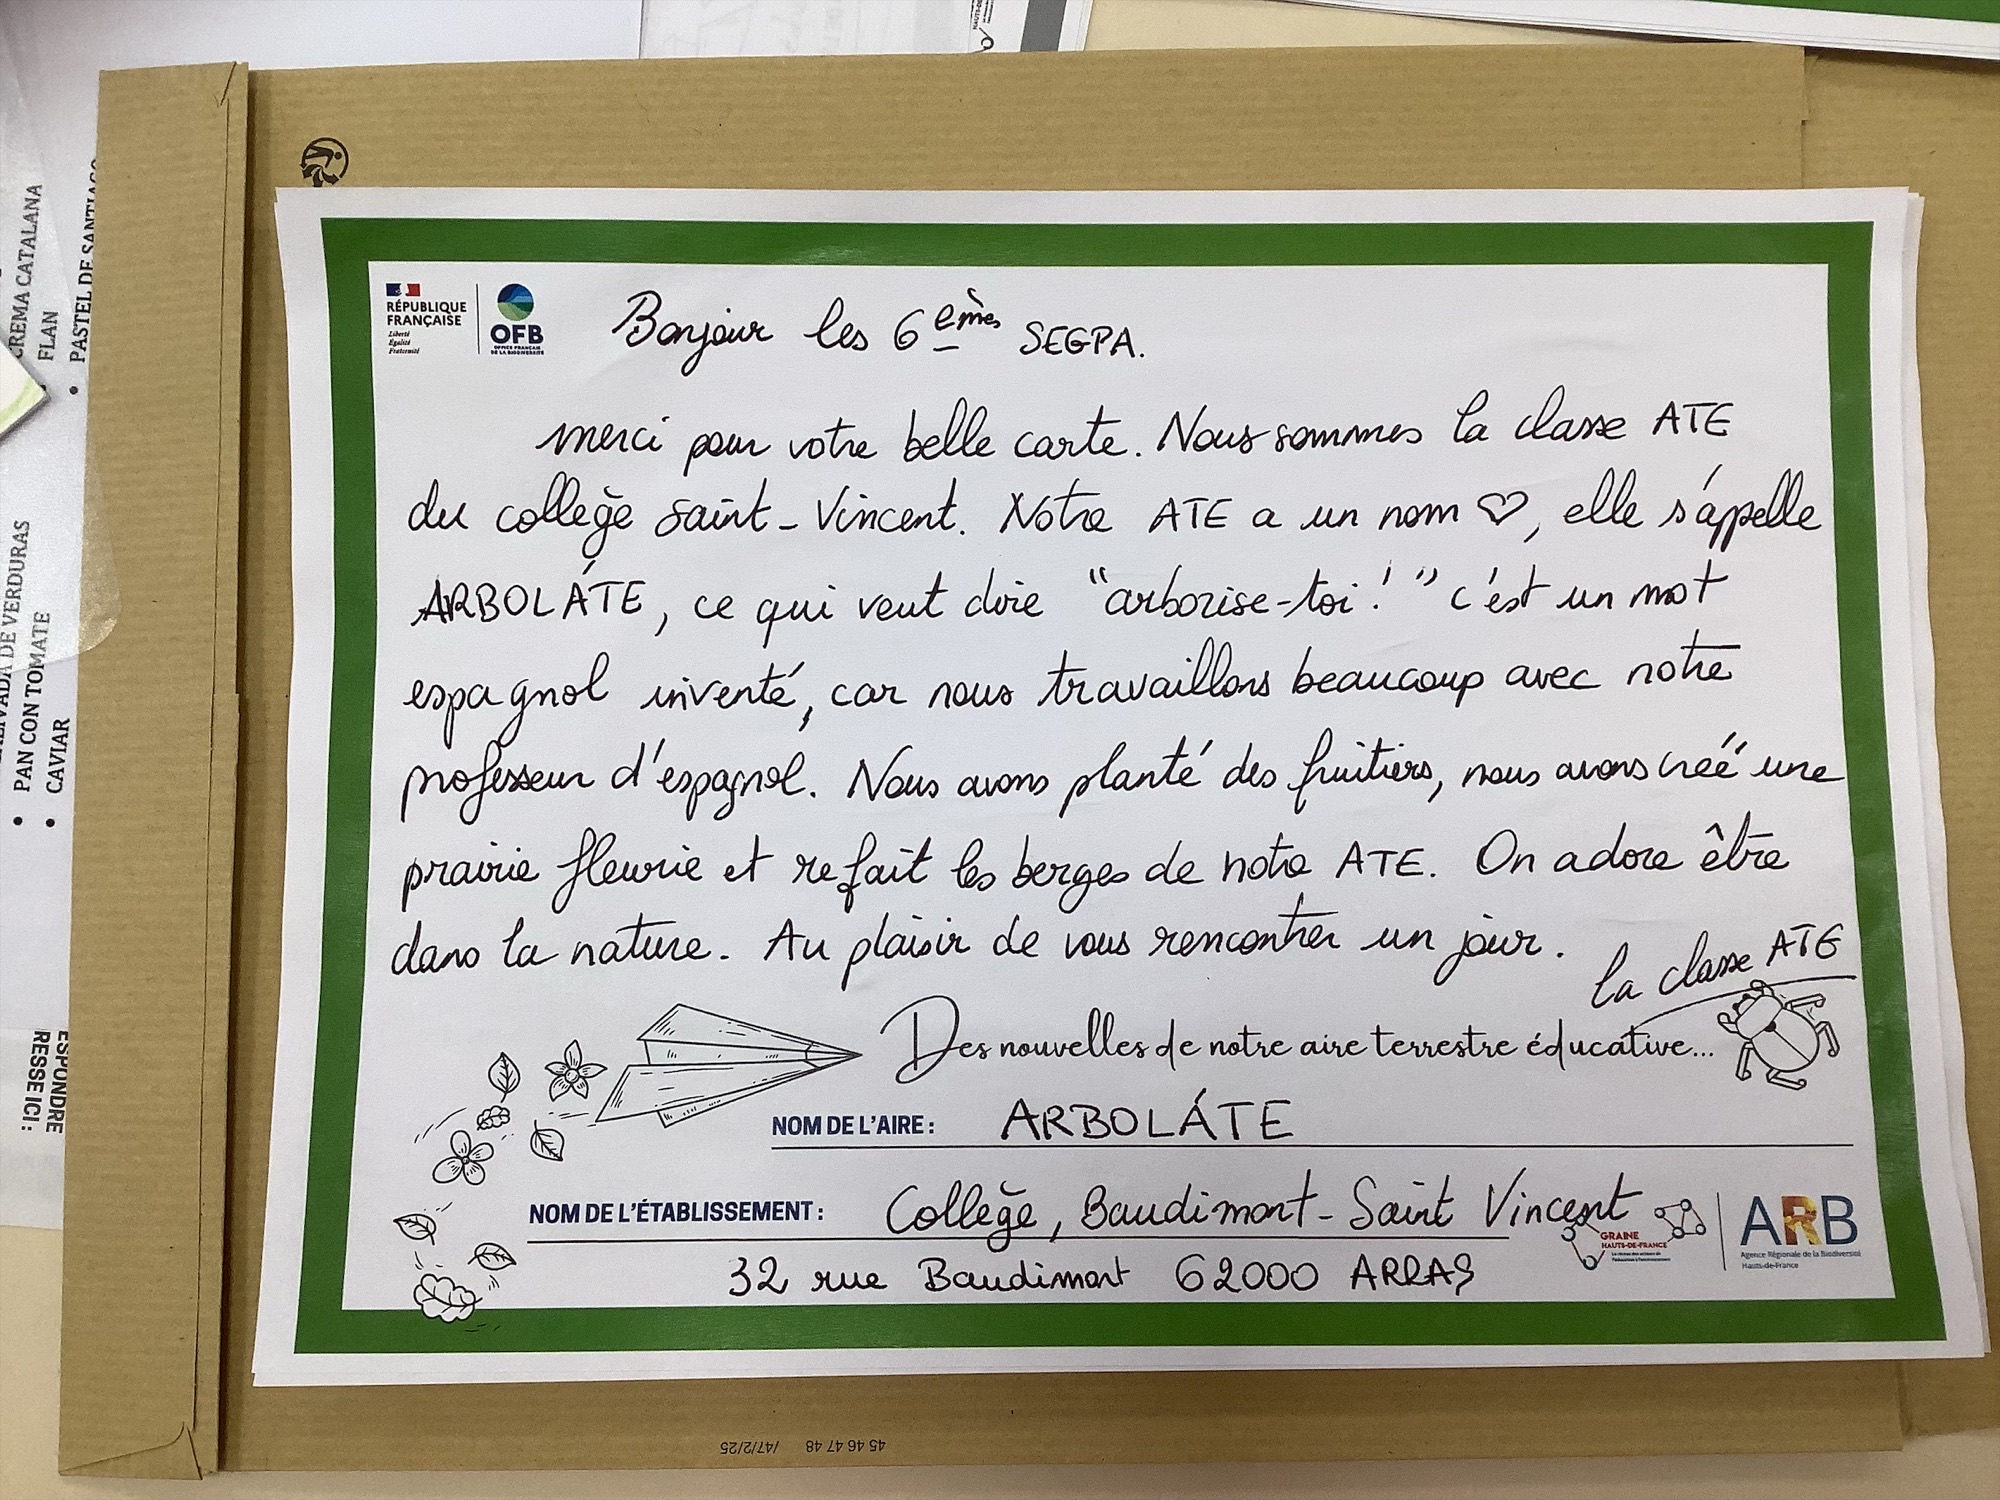 CREMA CATALANA
• FLAN
• PASTEL DE SANTIAGO
DE VERDURAS
• PAN CON TOMATE
• CAVIAR
RESSE ICI :
RÉPUBLIQUE
FRANÇAISE
Liberté
Égalité
Fraternité
OFB
OFFICE FRANÇAIS
DE LA BIODIVERSITÉ
Bonjour les 6 èmes SEGPA.
merci pour votre belle carte. Nous sommes la classe ATE
du collège saint-Vincent. Notre ATE a un nom ♡, elle s'appelle
ARBOLÁTE, ce qui veut dire "arborise-toi!" c'est un mot
espagnol inventé, car nous travaillons beaucoup avec notre
professeur d'espagnol. Nous avons planté des fruitiers, nous avons créé une
prairie fleurie et refait les berges de notre ATE. On adore être
dans la nature. Au plaisir de vous rencontrer un jour.
la classe ATE
Des nouvelles de notre aire terrestre éducative...
NOM DE L'AIRE : ARBOLÁTE
NOM DE L'ÉTABLISSEMENT : Collège, Baudimont-Saint Vincent
32 rue Baudimont 62000 ARRAS
GRAINE
HAUTS-DE-FRANCE
ARB
Agence Régionale de la Biodiversité
Hauts-de-France
45 46 47 48 /47/2/25